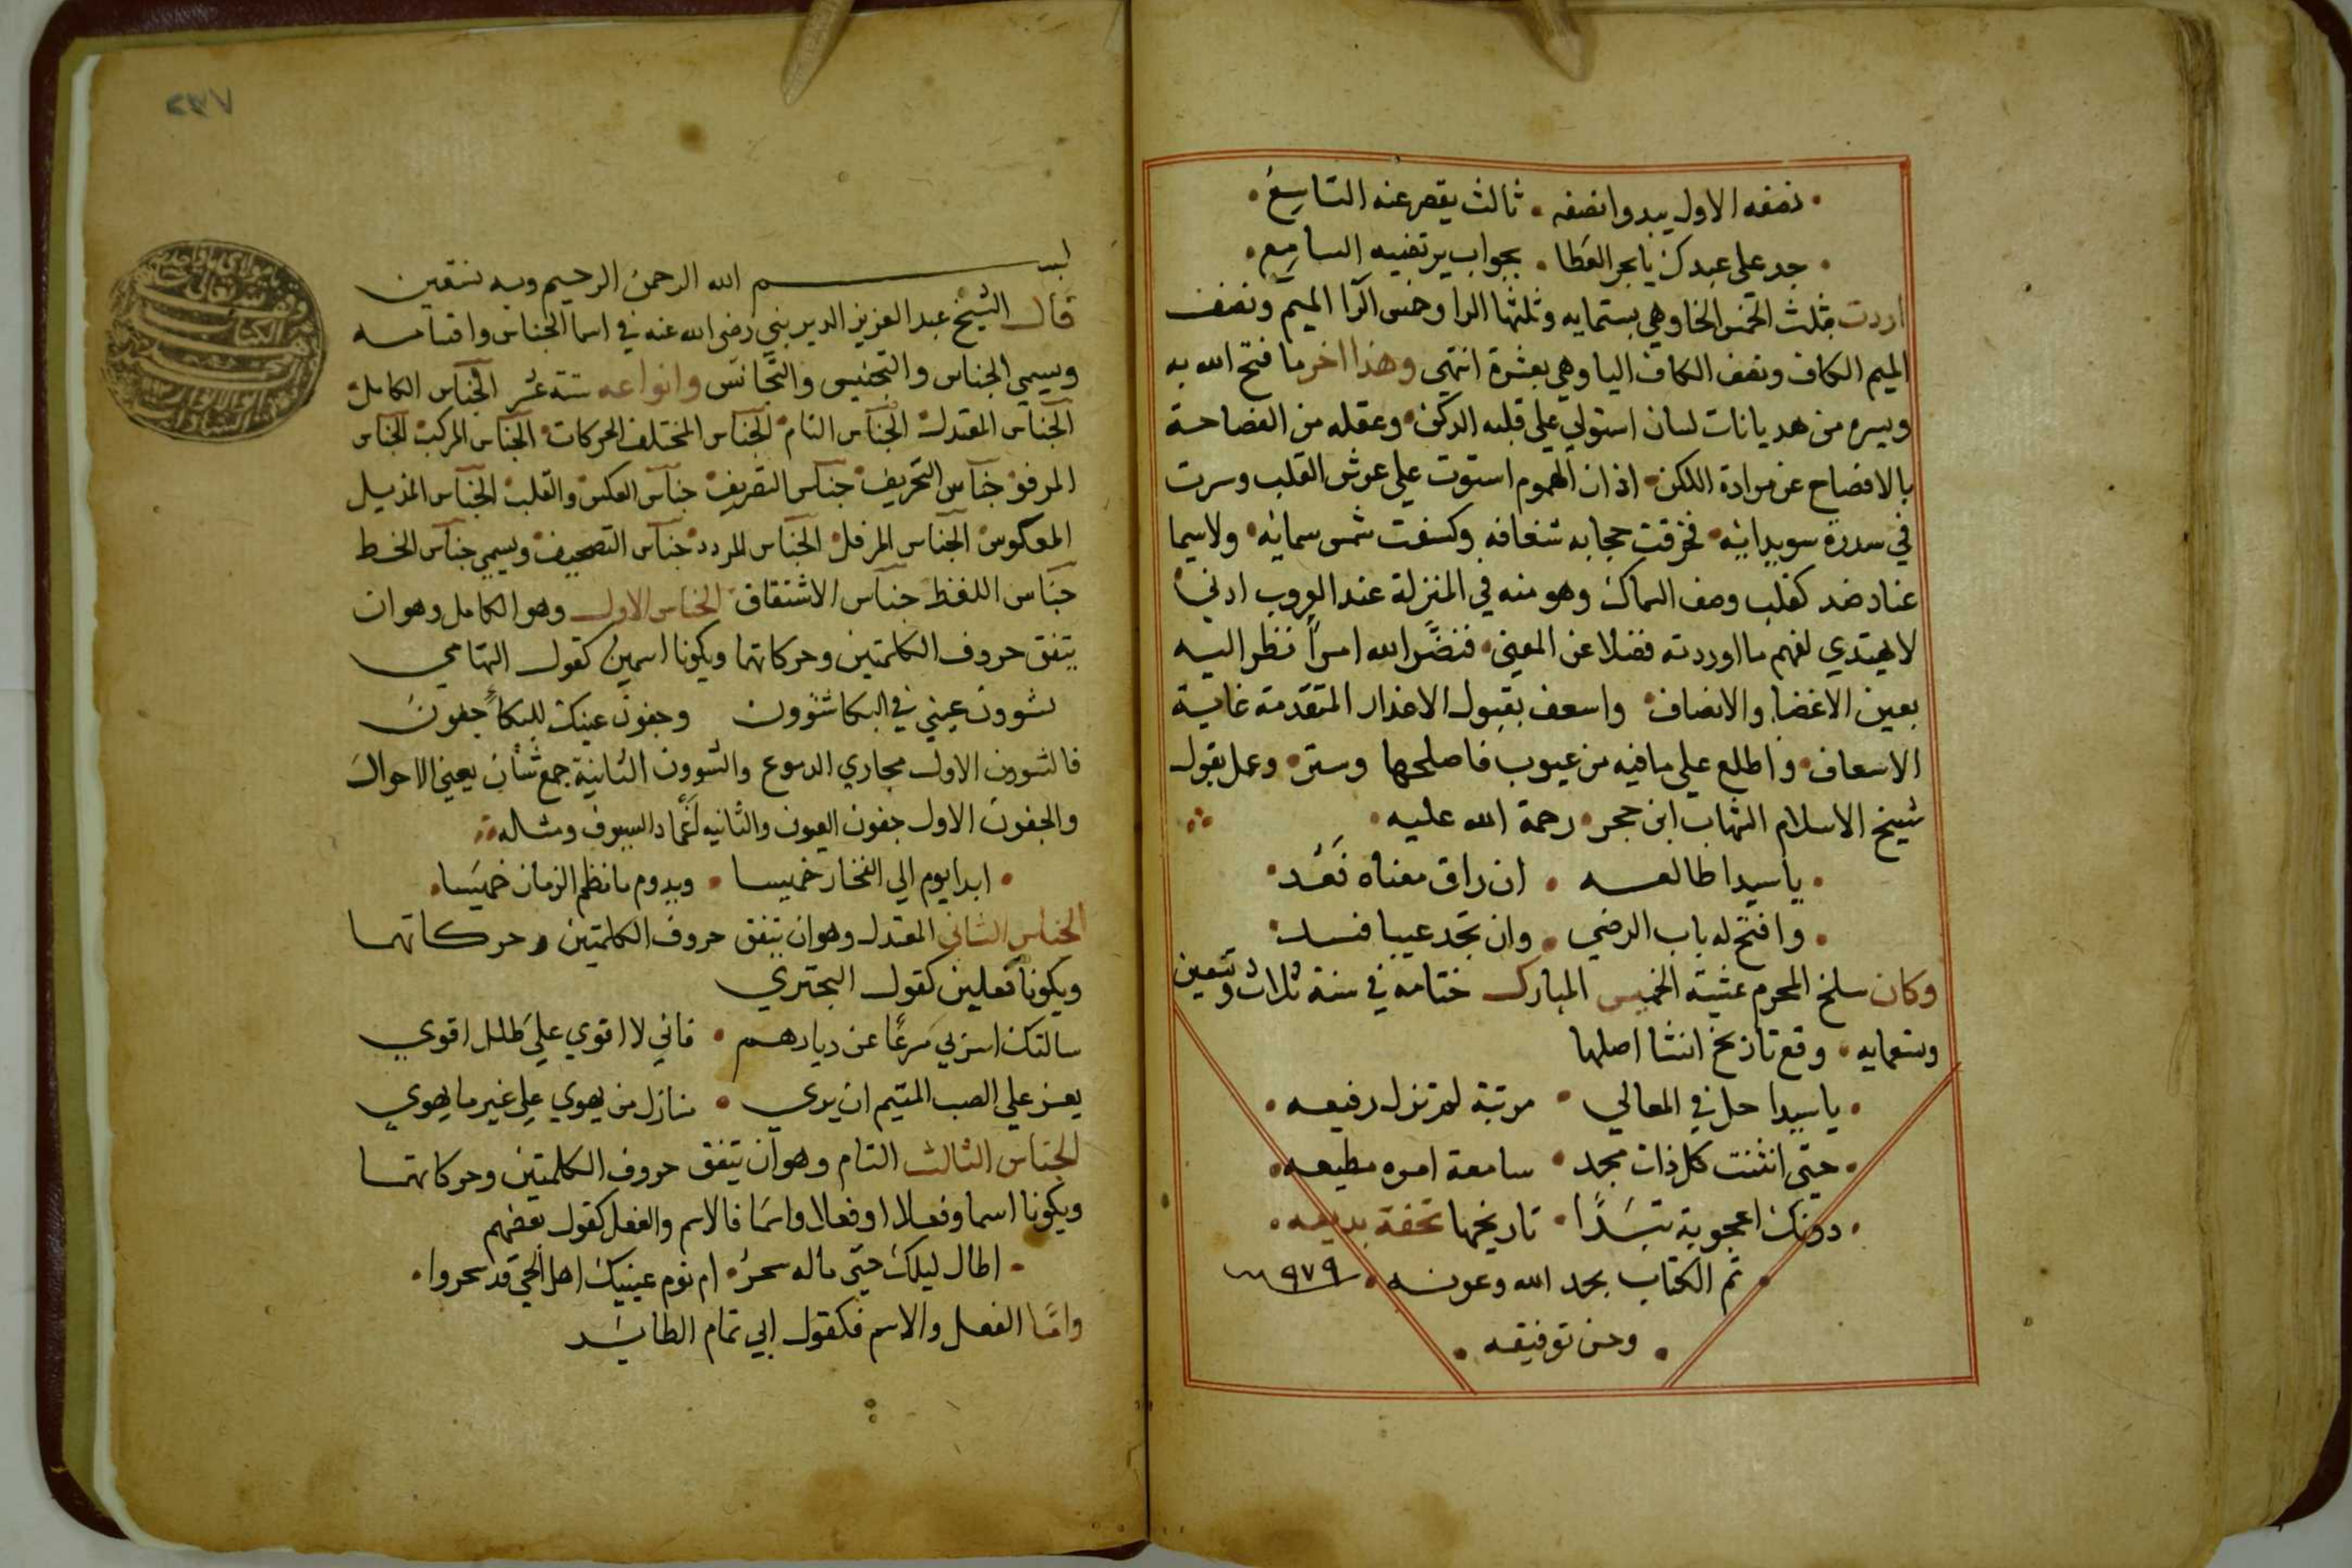 نصفه الاول يبدو انصفه • ثالث يقصر عنه التاسع •
جد على عبدك يا بحر العطا • بجواب يرتضيه السامع •
اردت بثلث الخمس الخا وهي بستمايه وثلثها الرا وخمس الرا الميم ونصف
الميم الكاف ونصف الكاف اليا وهي بعشرة انتهى وهذا اخر ما فتح الله به
ويسره من هديانات لسان استولي علي قلبه الدكن • وعقله من الفصاحة
بالافصاح عن مراده اللكن • اذ ان الهموم استوت علي عرش القلب وسرت
في سدرة سويدايه • فخرقت حجابه شغافه وكسفت شمس سمايه • ولاسيما
عناد ضد كقلب وصف السماك وهو منه في المنزلة عند الوروب ادني
لا يهتدي لفهم ما اوردته فضلا عن المعني • فنضر الله امرا نظر اليه
بعين الاغضا والانصاف • واسعف بقبول الاعذار المتقدمة غاية
الاسعاف • واطلع علي ما فيه من عيوب فاصلحها وستر • وعمل بقول
شيخ الاسلام الشهاب ابن حجر • رحمة الله عليه •
• يا سيدا طالعه • ان راق معناه فعد •
• وافتح له باب الرضي • وان تجد عيبا فسد •
وكان سلخ المحرم عشية الخميس المبارك ختامه في سنة ثلاث وتسعين
وتسعمايه • وقع تاريخ انشا اصلها
• يا سيدا حل في المعالي • مرتبة لم تزل رفيعه •
• حتى انثنت كل ذات مجد • سامعة امره مطيعه •
• دونك اعجوبة تبدا • تاريخها تحفة بديعه •
• تم الكتاب بحمد الله وعونه • ٩٧٩
• وحسن توفيقه •
بسم الله الرحمن الرحيم وبه نستعين
قال الشيخ عبد العزيز الديريني رضي الله عنه في اسما الجناس واقسامه
ويسمي الجناس والتجنيس والتجانس وانواعه ستة عشر الجناس الكامل
الجناس المعتدل الجناس التام الجناس المختلف الحركات الجناس المركب الجناس
المرفو جناس التحريف جناس التصريف جناس العكس والقلب الجناس المذيل
المعكوس الجناس المرفل الجناس المردد جناس التصحيف ويسمي جناس الخط
جناس اللفظ جناس الاشتقاق الجناس الاول وهو الكامل وهو ان
يتفق حروف الكلمتين وحركاتهما ويكونا اسمين كقول التهامي
لشوون عيني في البكا شوون وجفون عينك للبكا جفون
فالشوون الاول مجاري الدموع والشوون الثانية جمع شأن يعني الاحوال
والجفون الاول جفون العيون والثانيه اغماد السيوف ومثاله
• ابدا يوم الي الفخار خميسا • ويدوم ما نظم الزمان خميسا •
الجناس الثاني المعتدل وهو ان يتفق حروف الكلمتين وحركاتهما
ويكونا فعلين كقول البحتري
سالتك اسر بي مسرعا عن ديارهم • فاني لا اقوي علي طلل اقوي
يعز علي الصب المتيم ان يري • منازل من يهوي علي غير ما يهوي
الجناس الثالث التام وهو ان يتفق حروف الكلمتين وحركاتهما
ويكونا اسما وفعلا او فعلا واسما فالاسم والفعل كقول بعضهم
• اطال ليلك حتى ماله سحر • ام نوم عينيك اهل الحي قد سحروا •
واما الفعل والاسم فكقول ابي تمام الطائي